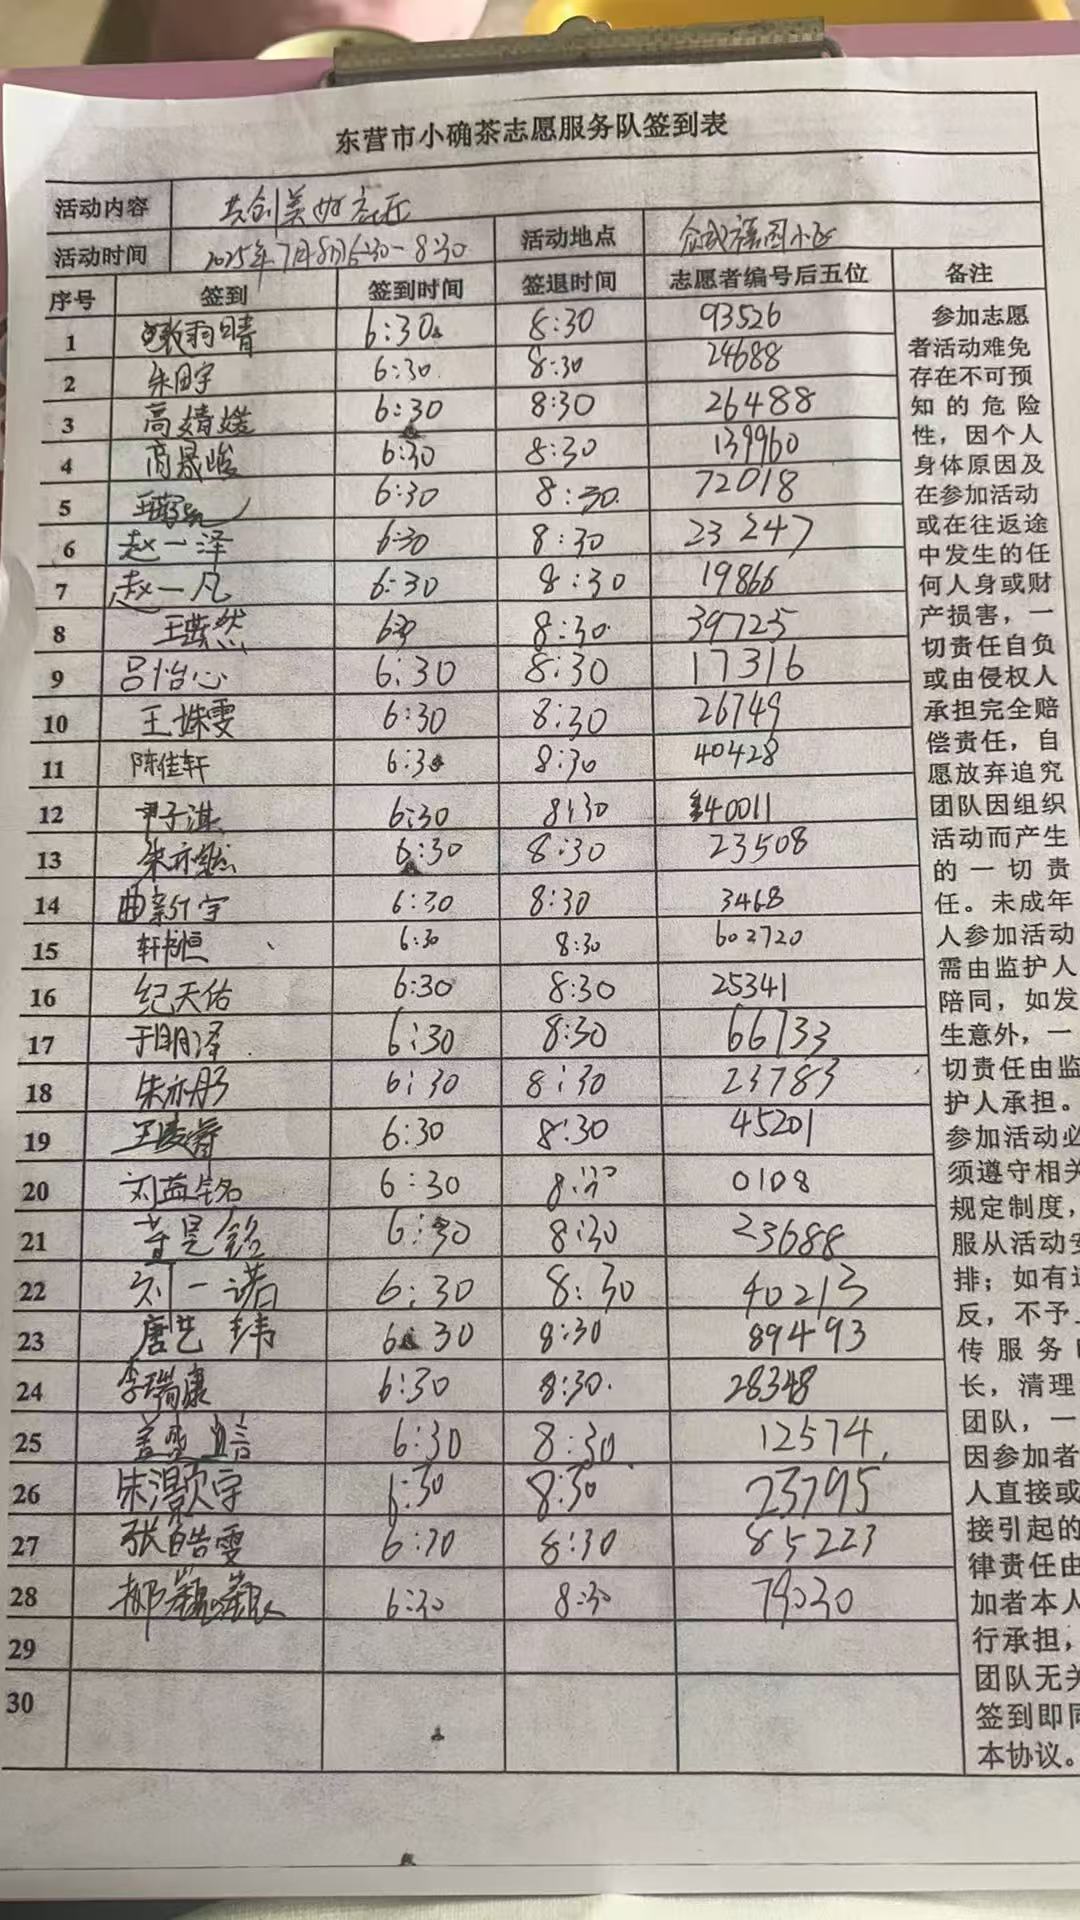 东营市小确茶志愿服务队签到表
活动内容 共创美好家园
活动时间 2025年7月8日6:30-8:30 活动地点 众成禧园小区
序号 签到 签到时间 签退时间 志愿者编号后五位 备注
1 6:30 8:30 93526
2 朱田宇 6:30 8:30 24688
3 高婧媛 6:30 8:30 26488
4 高晟峻 6:30 8:30 139960
5 6:30 8:30 72018
6 赵一泽 6:30 8:30 23247
7 赵一凡 6:30 8:30 19866
8 6:30 8:30 39725
9 吕怡心 6:30 8:30 17316
10 王姝雯 6:30 8:30 26749
11 陈佳轩 6:30 8:30 40428
12 尹子淇 6:30 8:30 40011
13 6:30 8:30 23508
14 6:30 8:30 3468
15 6:30 8:30 602720
16 纪天佑 6:30 8:30 25341
17 于明泽 6:30 8:30 66733
18 朱亦彤 6:30 8:30 23783
19 6:30 8:30 45201
20 刘益铭 6:30 8:30 0108
21 6:30 8:30 23688
22 刘一诺 6:30 8:30 40213
23 唐艺玮 6:30 8:30 89493
24 李瑞康 6:30 8:30 28348
25 6:30 8:30 12574
26 6:30 8:30 23795
27 张皓雯 6:30 8:30 85223
28 6:30 8:30 79030
29
30
参加志愿
者活动难免
存在不可预
知的危险
性，因个人
身体原因及
在参加活动
或在往返途
中发生的任
何人身或财
产损害，一
切责任自负
或由侵权人
承担完全赔
偿责任，自
愿放弃追究
团队因组织
活动而产生
的一切责
任。未成年
人参加活动
需由监护人
陪同，如发
生意外，一
切责任由监
护人承担。
参加活动必
须遵守相关
规定制度，
服从活动安
排；如有违
反，不予上
传服务时
长，清理
团队，一
因参加者
人直接或
接引起的
律责任由
加者本人
行承担，
团队无关
签到即同
本协议。